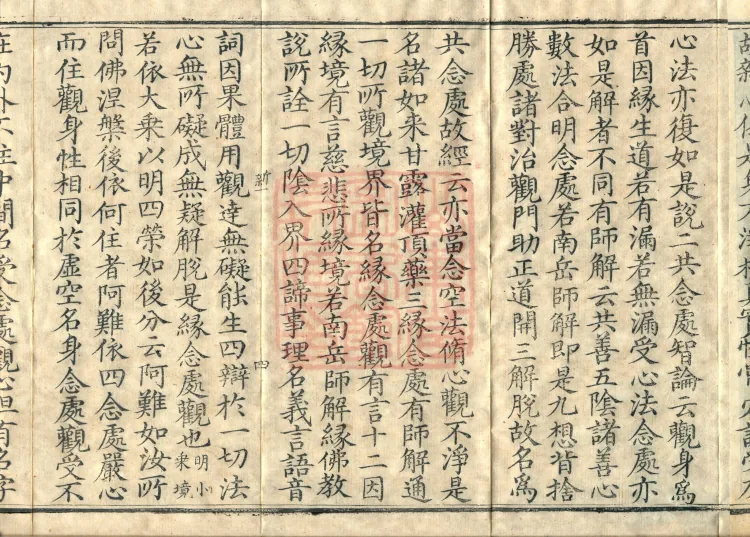 心法亦復如是說二共念處智論云觀身爲
首因緣生道若有漏若無漏受心法念處亦
如是解者不同有師解云共善五陰諸善心
數法合明念處若南岳師解即是九想背捨
勝處諸對治觀門助正道開三解脫故名爲
共念處故經云亦當念空法脩心觀不淨是
名諸如来甘露灌頂藥三緣念處有師解通
一切所觀境界皆名緣念處觀有言十二因
緣境有言慈悲所緣境若南岳師解緣佛教
說所詮一切陰入界四諦事理名義言語音
詞因果體用觀達無礙能生四辯於一切法
心無所礙成無疑解脫是緣念處觀也明小乘境
若依大乘以明四榮如後分云阿難如汝所
問佛涅槃後依何住者阿難依四念處嚴心
而住觀身性相同於虛空名身念處觀受不
在內外不住中間名受念處觀心但有名字